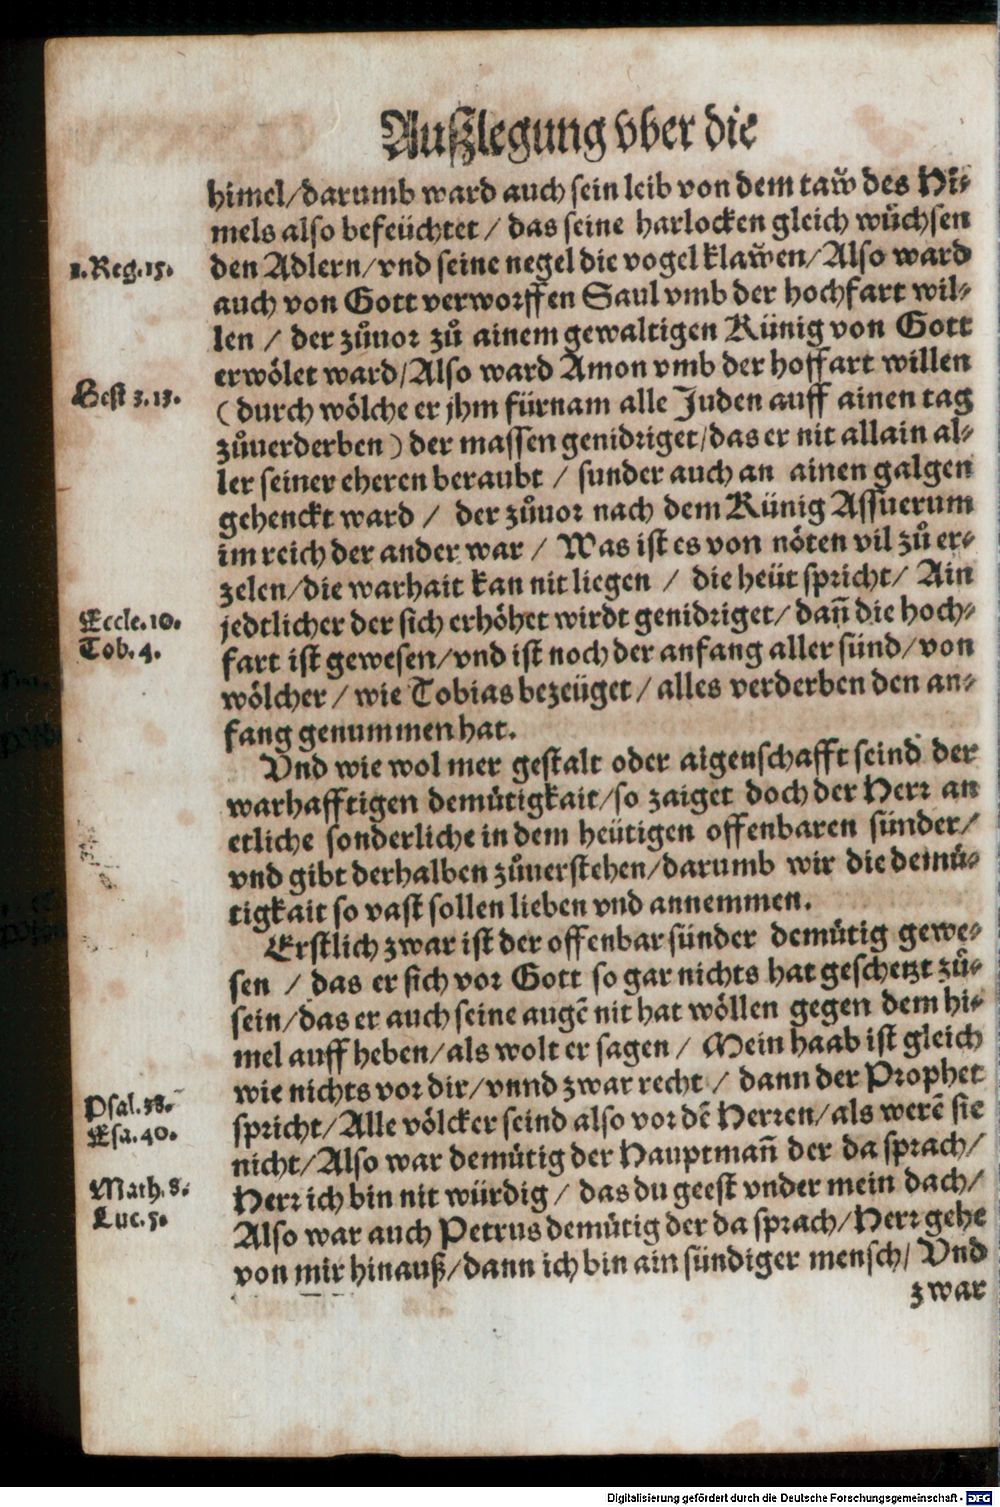 Außlegung vber die
himel/darumb ward auch sein leib von dem taw̆ des Hi⸗
mels also befeüchtet / das seine harlocken gleich wůchsen
1. Reg. 15.
den Adlern/vnd seine negel die vogel klaw̆en/Also ward
auch von Gott verworffen Saul vmb der hochfart wil⸗
len / der zůuor zů ainem gewaltigen Künig von Gott
erwölet ward/Also ward Amon vmb der hoffart willen
Hest 3. 13.
(durch wölche er jhm fürnam alle Juden auff ainen tag
zůuerderben) der massen genidriget/das er nit allain al⸗
ler seiner eheren beraubt / sunder auch an ainen galgen
gehenckt ward / der zůuor nach dem Künig Assuerum
im reich der ander war / Was ist es von nöten vil zů er⸗
zelen/die warhait kan nit liegen / die heüt spricht/ Ain
Eccle. 10.
jedtlicher der sich erhöhet wirdt genidriget/ dañ die hoch⸗
Tob. 4.
fart ist gewesen/vnd ist noch der anfang aller sünd/von
wölcher / wie Tobias bezeüget / alles verderben den an⸗
fang genummen hat.
Vnd wie wol mer gestalt oder aigenschafft seind der
warhafftigen demůtigkait/so zaiget doch der Herr an
etliche sonderliche in dem heütigen offenbaren sünder/
vnd gibt derhalben zůuerstehen/darumb wir die demů⸗
tigkait so vast sollen lieben vnd annemmen.
Erstlich zwar ist der offenbar sünder demůtig gewe⸗
sen / das er sich vor Gott so gar nichts hat geschetzt zů⸗
sein/das er auch seine augẽ nit hat wöllen gegen dem hi⸗
mel auff heben/als wolt er sagen / Mein haab ist gleich
wie nichts vor dir/vnnd zwar recht / dann der Prophet
Psal. 38.
spricht/Alle völcker seind also vor dẽ Herren/als werẽ sie
Esa. 40.
nicht/Also war demůtig der Hauptmañ der da sprach/
Math. 8.
Herr ich bin nit würdig / das du geest vnder mein dach/
Luc. 5.
Also war auch Petrus demůtig der da sprach/Herr gehe
von mir hinauß/dann ich bin ain sündiger mensch/ Vnd
zwar
Digitalisierung gefördert durch die Deutsche Forschungsgemeinschaft - DFG